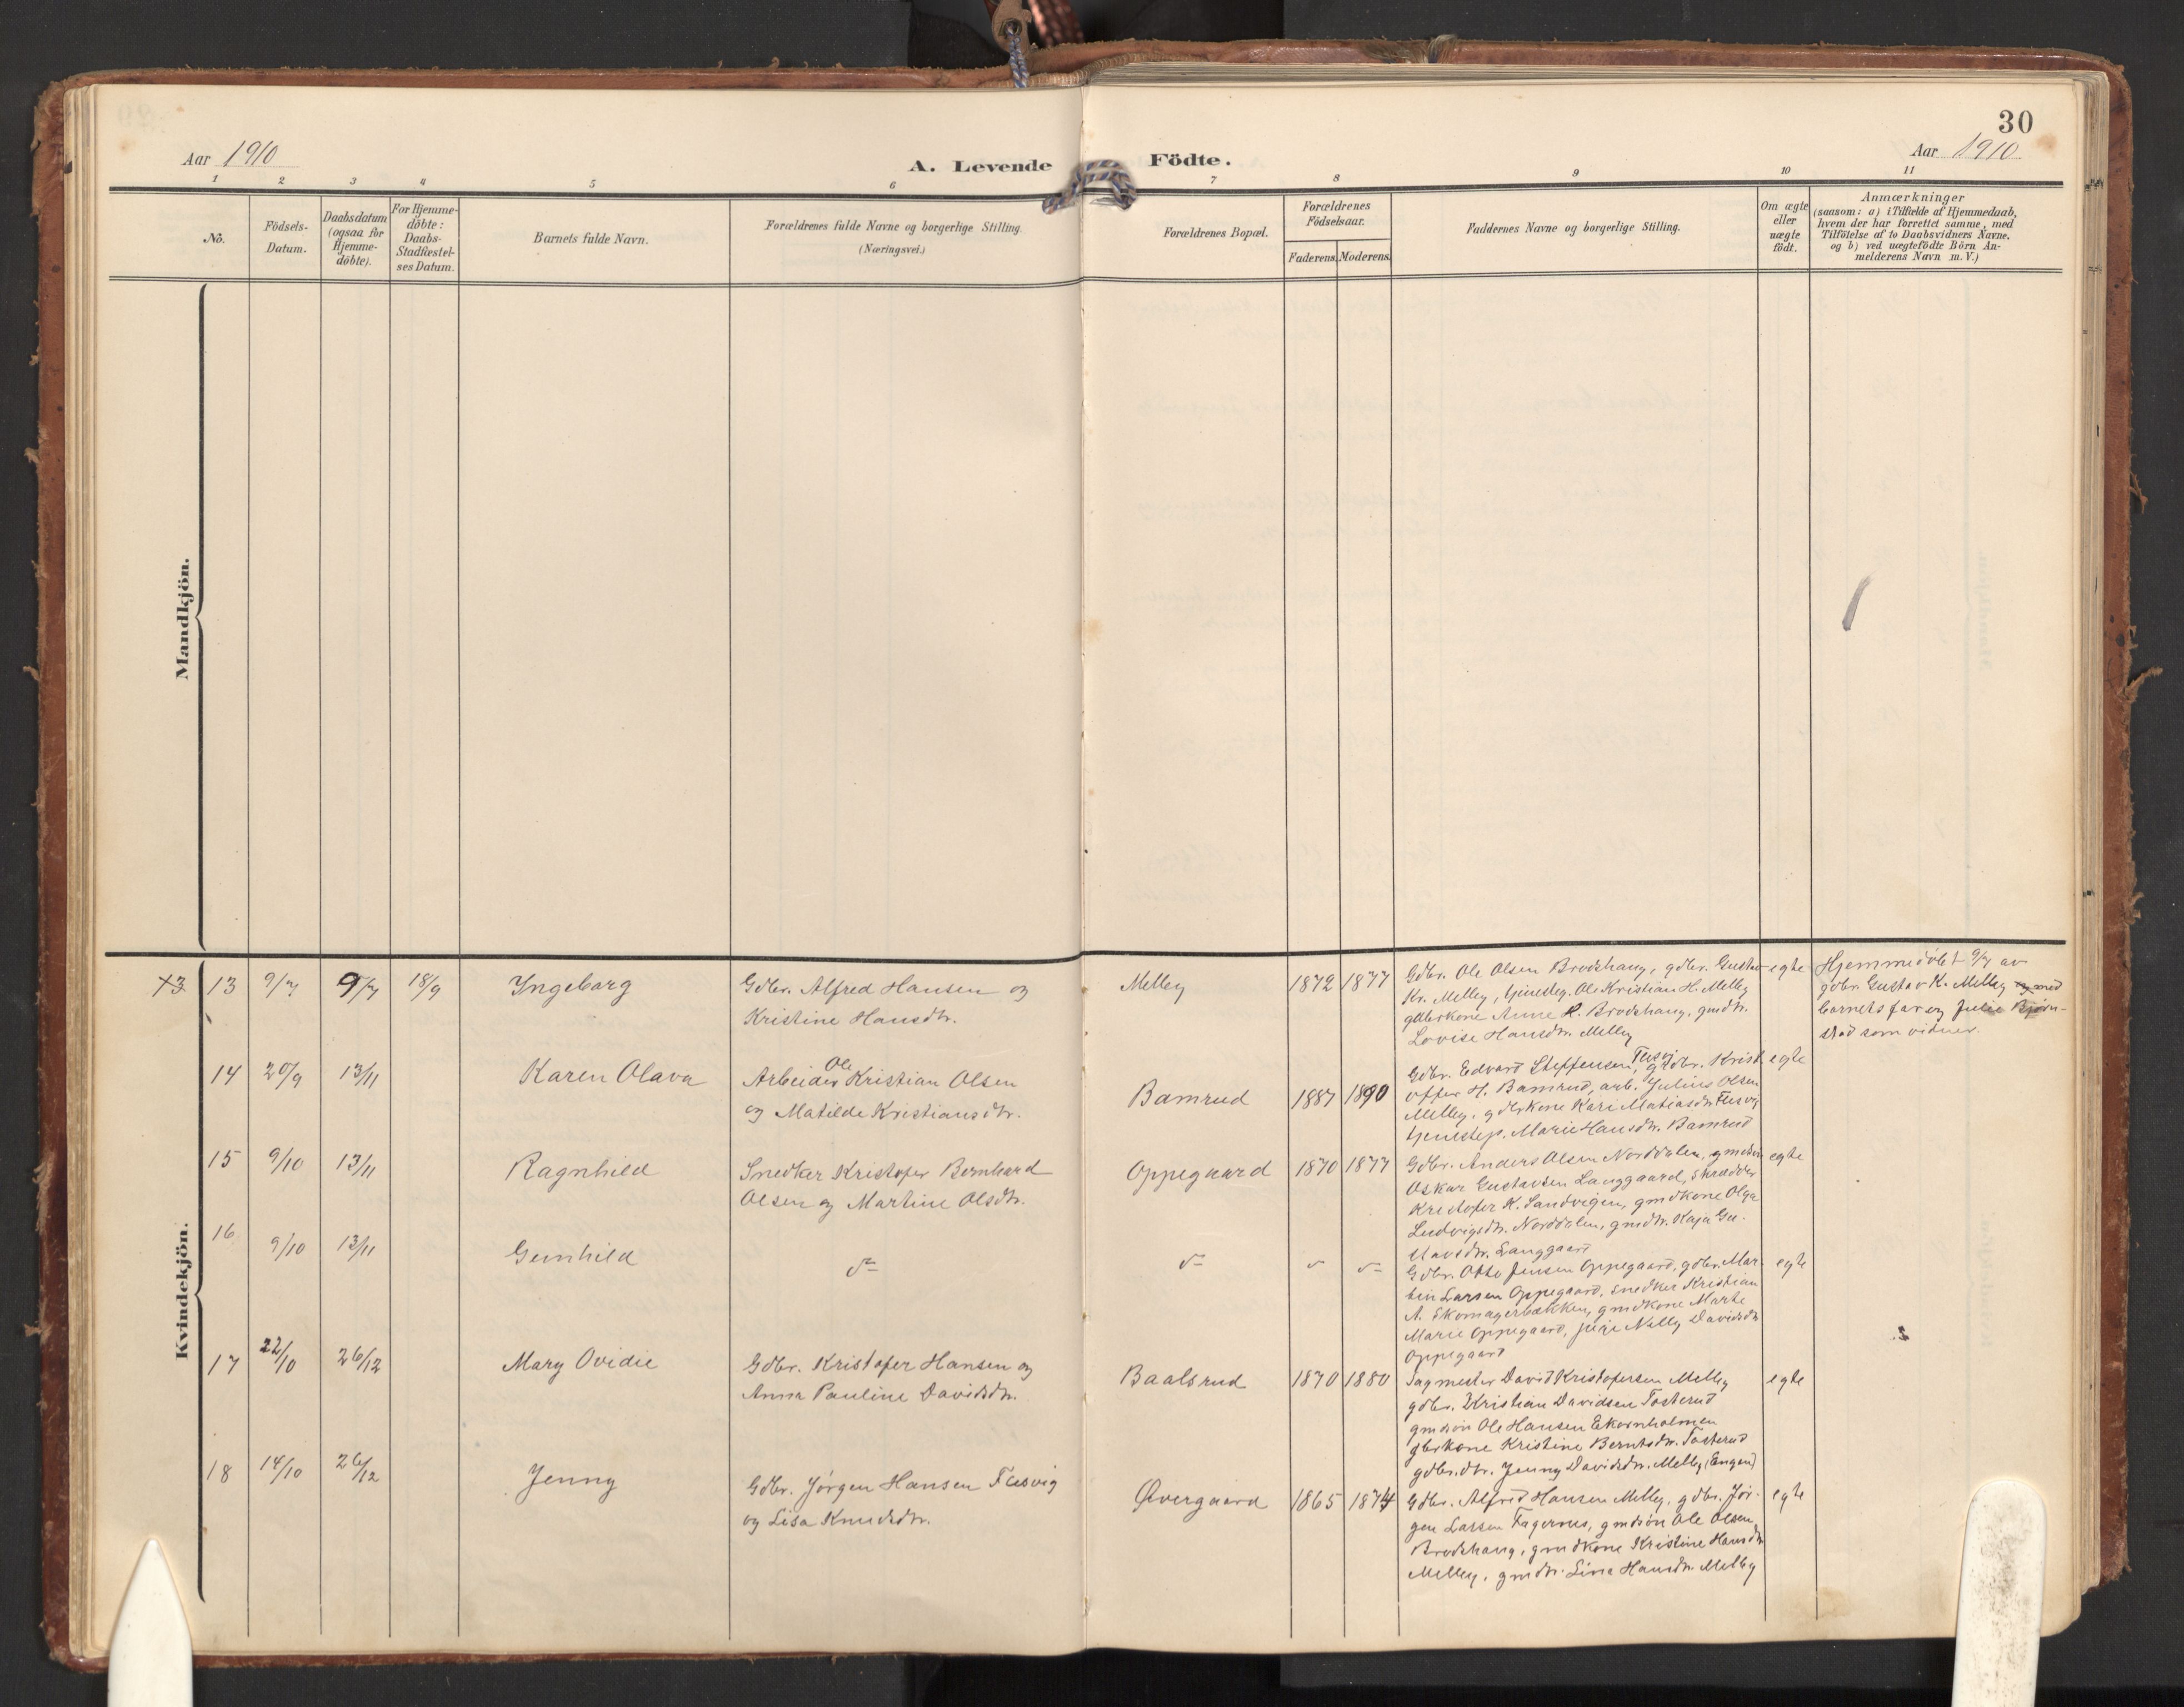 30
Aar 1910
A. Levende Födte.
Aar 1910
1 2 3 4 5 6 7 8 9 10 11
No.
Födsels-Datum.
Daabsdatum (ogsaa for Hjemme-döbte).
For Hjemme-döbte: Daabs-Stadfæstel-ses Datum.
Barnets fulde Navn.
Forældrenes fulde Navne og borgerlige Stilling.
(Næringsvei.)
Forældrenes Bopæl.
Forældrenes Födselsaar.
Faderens. Moderens.
Faddernes Navne og borgerlige Stilling.
Om ægte eller uægte födt.
Anmærkninger
(saasom: a) i Tilfælde af Hjemmedaab,
hvem der har forrettet samme, med
Tilföielse af to Daabsvidners Navne,
og b) ved uægtefödte Börn An-
melderens Navn m. V.)
Mandkjön.
Kvindekjön.
13 9/7 9/7 18/9 Ingeborg
Gdbr. Alfred Hansen og
Kristine Hansdtr.
Melby 1872 1877
Gdbr. Ole Olsen Brodshaug, gdbr. Gustav
Kr. Melby, tjenesteg. Ole Kristian H. Melby
gdbrkone Anne H. Brodshaug, gmdtr.
Lovise Hansdtr. Melby
egte
Hjemmedöbt 9/7 av
gdbr. Gustav K. Melby og med
barnets far og Julie Bjørn-
stad som vidner.
14 20/9 13/11 Karen Olava
Ole
Arbeider Kristian Olsen
og Matilde Kristiansdtr.
Bamrud 1887 1890
Gdbr. Edvard Steffensen Fusvig, gdbr. Krist
offer H. Bamrud, arb. Julius Olsen
Melby, gdbrkone Kari Matiasdtr. Flesvig
tjenestep. Marie Hansdtr. Bamrud
egte
15 9/10 13/11 Ragnhild
Snedker Kristofer Bernhard
Olsen og Martine Olsdtr.
Oppegaard 1870 1877
Gdbr. Anders Olsen Norddalen, gmdsøn
Oskar Gustavsen Langgaard, skrædder
Kristofer K. Sandvigen, gmdkone Olga
Ludvigsdtr. Norddalen, gmdtr. Kaja Gu-
stavsdtr. Langgaard
egte
16 9/10 13/11 Gunhild
Gdbr. Otto Jensen Oppegaard, gdbr. Mar-
tin Larsen Oppegaard, snedker Kristian
A. Skomagerbækken, gmdkone Marte
Marie Oppegaard, pige Nelly Davidsdtr
Oppegaard
egte
17 22/10 26/12 Mary Ovidie
Gdbr. Kristofer Hansen og
Anna Pauline Davidsdtr.
Baalsrud 1870 1880
Sagmester David Kristofersen Melby
gdbr. Kristian Davidsen Tosterud
gmdsøn Ole Hansen Ekornholmen
gbrkone Kristine Berntsdtr. Tosterud
gdbr.dtr. Jenny Davidsdtr. Melby (Engen)
egte
18 14/10 26/12 Jenny
Gdbr. Jørgen Hansen Flesvig
og Lisa Knudsdtr.
Øvergaard 1865 1874
Gdbr. Alfred Hansen Melby, gdbr. Jør-
gen Larsen Fagernes, gmdsøn Ole Olsen
Brodshaug, gmdkone Kristine Hansdtr
Melby, gmdtr. Lina Hansdtr. Melby
egte